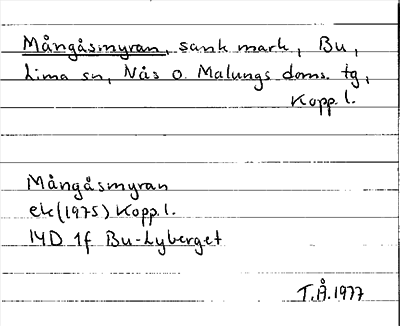 Mångåsmyran, sank mark, Bu,
Lima sn, Nås o. Malungs doms. tg,
Kopp. l.
Mångåsmyran
ek (1975) Kopp. l.
14D 1f Bu-Lyberget
T.Å. 1977